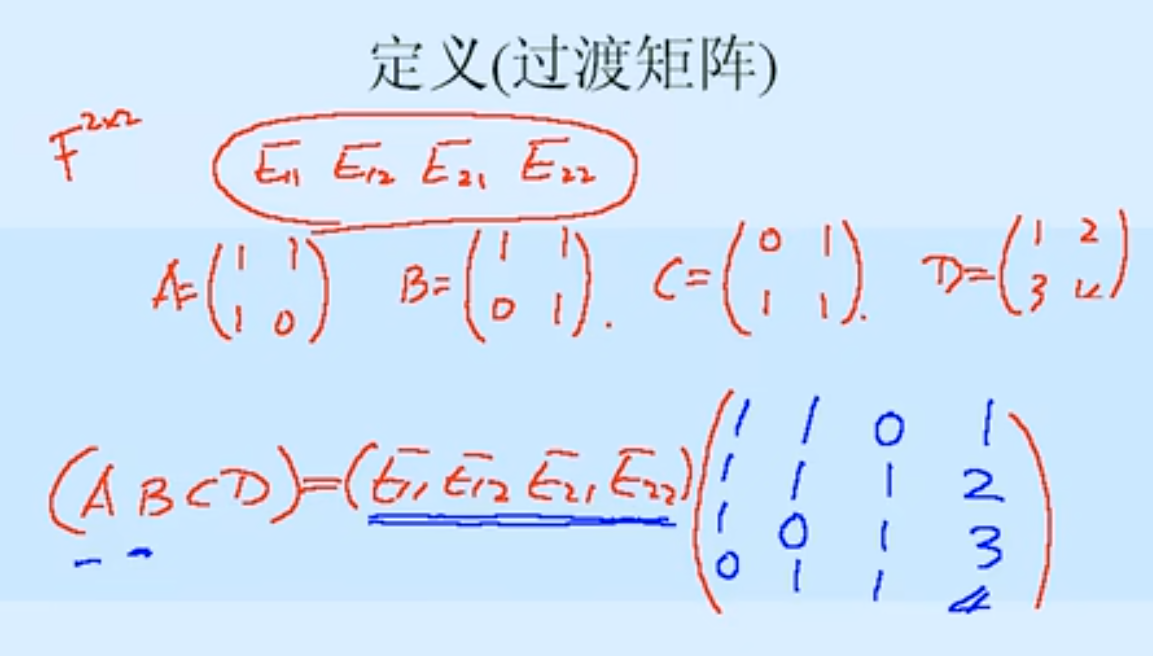 定义(过渡矩阵)
F^{2×2} E₁₁ E₁₂ E₂₁ E₂₂
A=(1 1; 1 0) B=(1 1; 0 1). C=(0 1; 1 1). D=(1 2; 3 4)
(A B C D)=(E₁₁ E₁₂ E₂₁ E₂₂)(1 1 0 1
1 1 1 2
1 0 1 3
0 1 1 4)